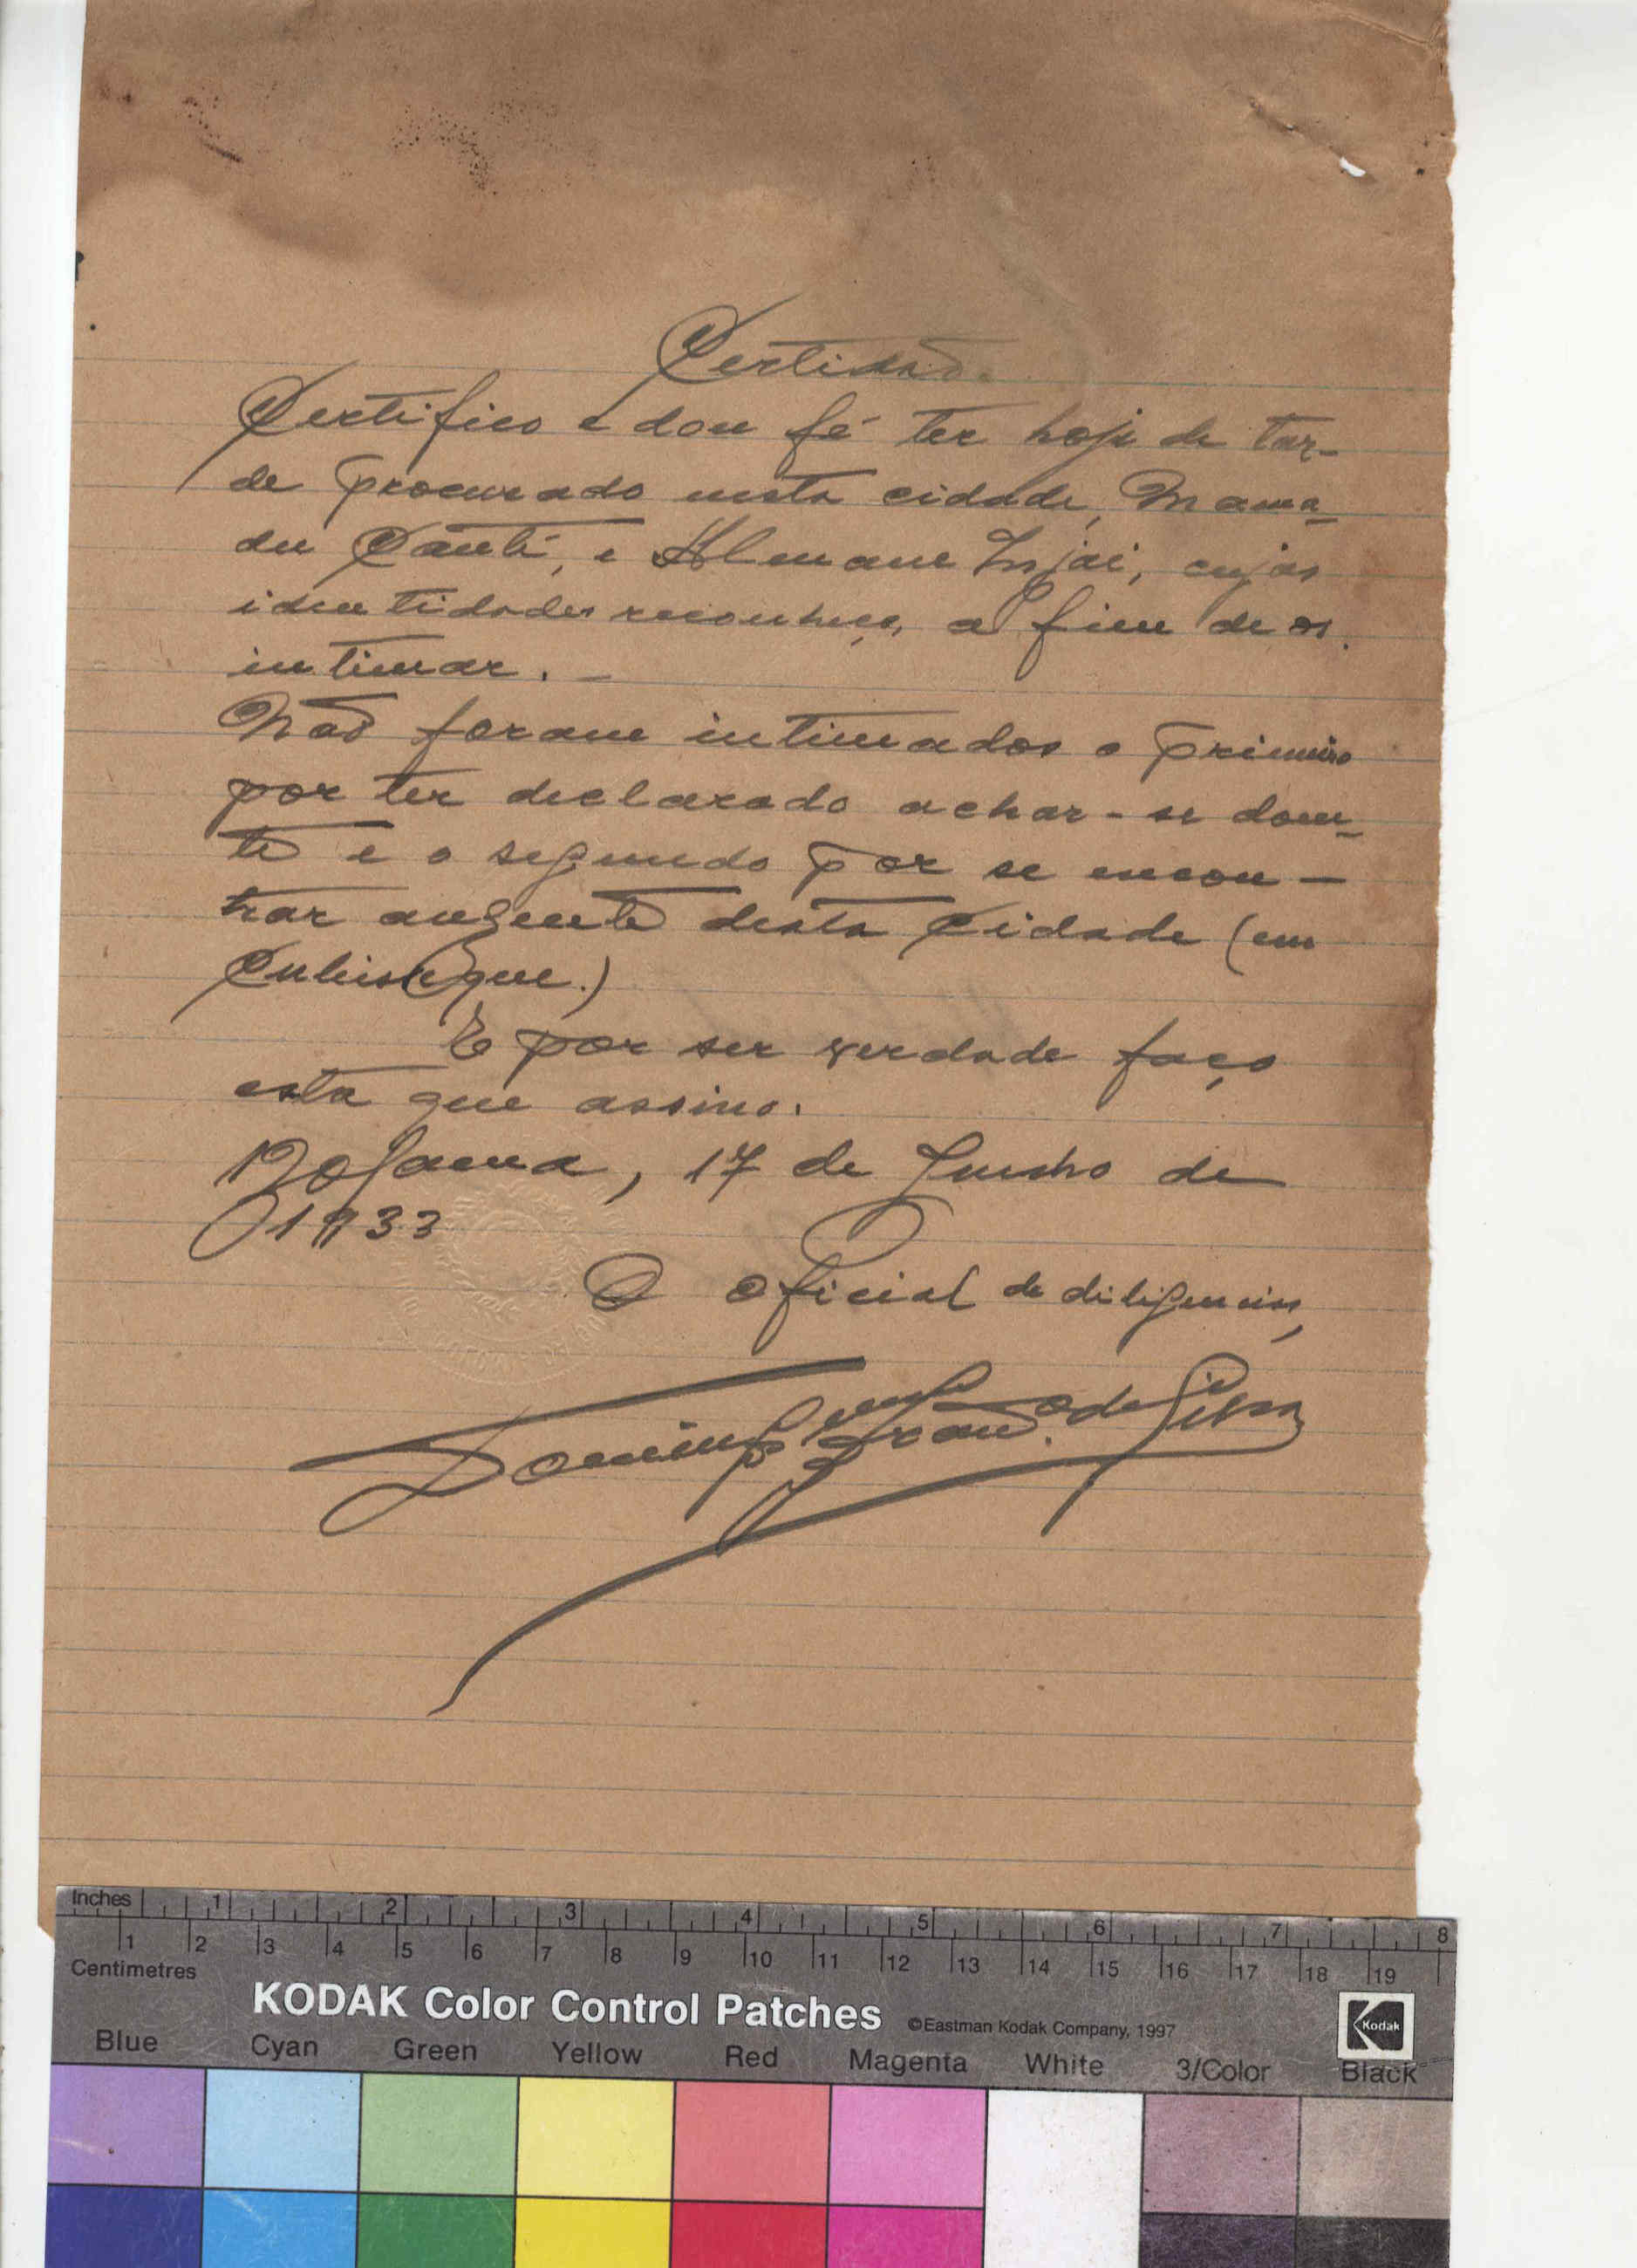 Certidão.
Certifico e dou fé ter hoje de tar-
de procurado nesta cidade, Mama-
du Canté, e Almame Injai, cujas
identidades reconheço, a fim de os
intimar. –
Não foram intimados o primeiro
por ter declarado achar-se doen-
te e o segundo por se encon-
trar auzente desta Cidade (em
E por ser verdade faço
esta que assino.
Bolama, 17 de Junho de
1933
O oficial de diligencias,
Domingos da Silva
Inches 1 2 3 4 5 6 7 8
1 2 3 4 5 6 7 8 9 10 11 12 13 14 15 16 17 18 19
Centimetres
KODAK Color Control Patches ©Eastman Kodak Company, 1997 Kodak
Blue Cyan Green Yellow Red Magenta White 3/Color Black